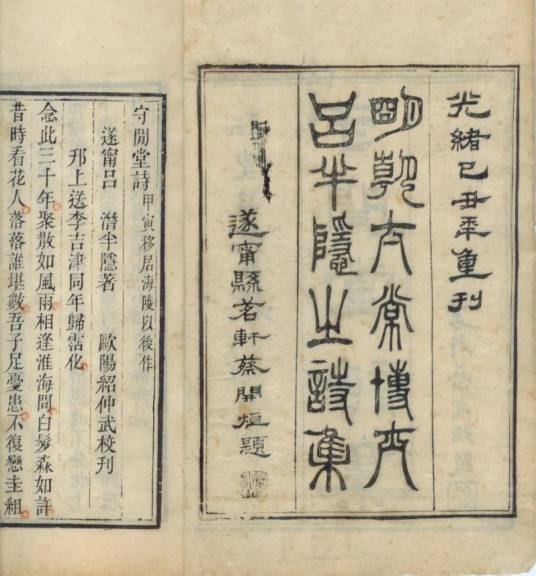 光緒己丑年重刊
明朝太常博士
呂半隱之詩集
遂甯縣茗軒蔡開煊題
守閒堂詩甲寅移居海陵以後作
遂甯呂 潛半隱著 歐陽紹仲武校刊
邗上送李吉津同年歸霑化
念此三十年聚散如風雨相逢淮海間白髮森如許
昔時看花人落落誰堪數吾子足憂患不復戀圭組